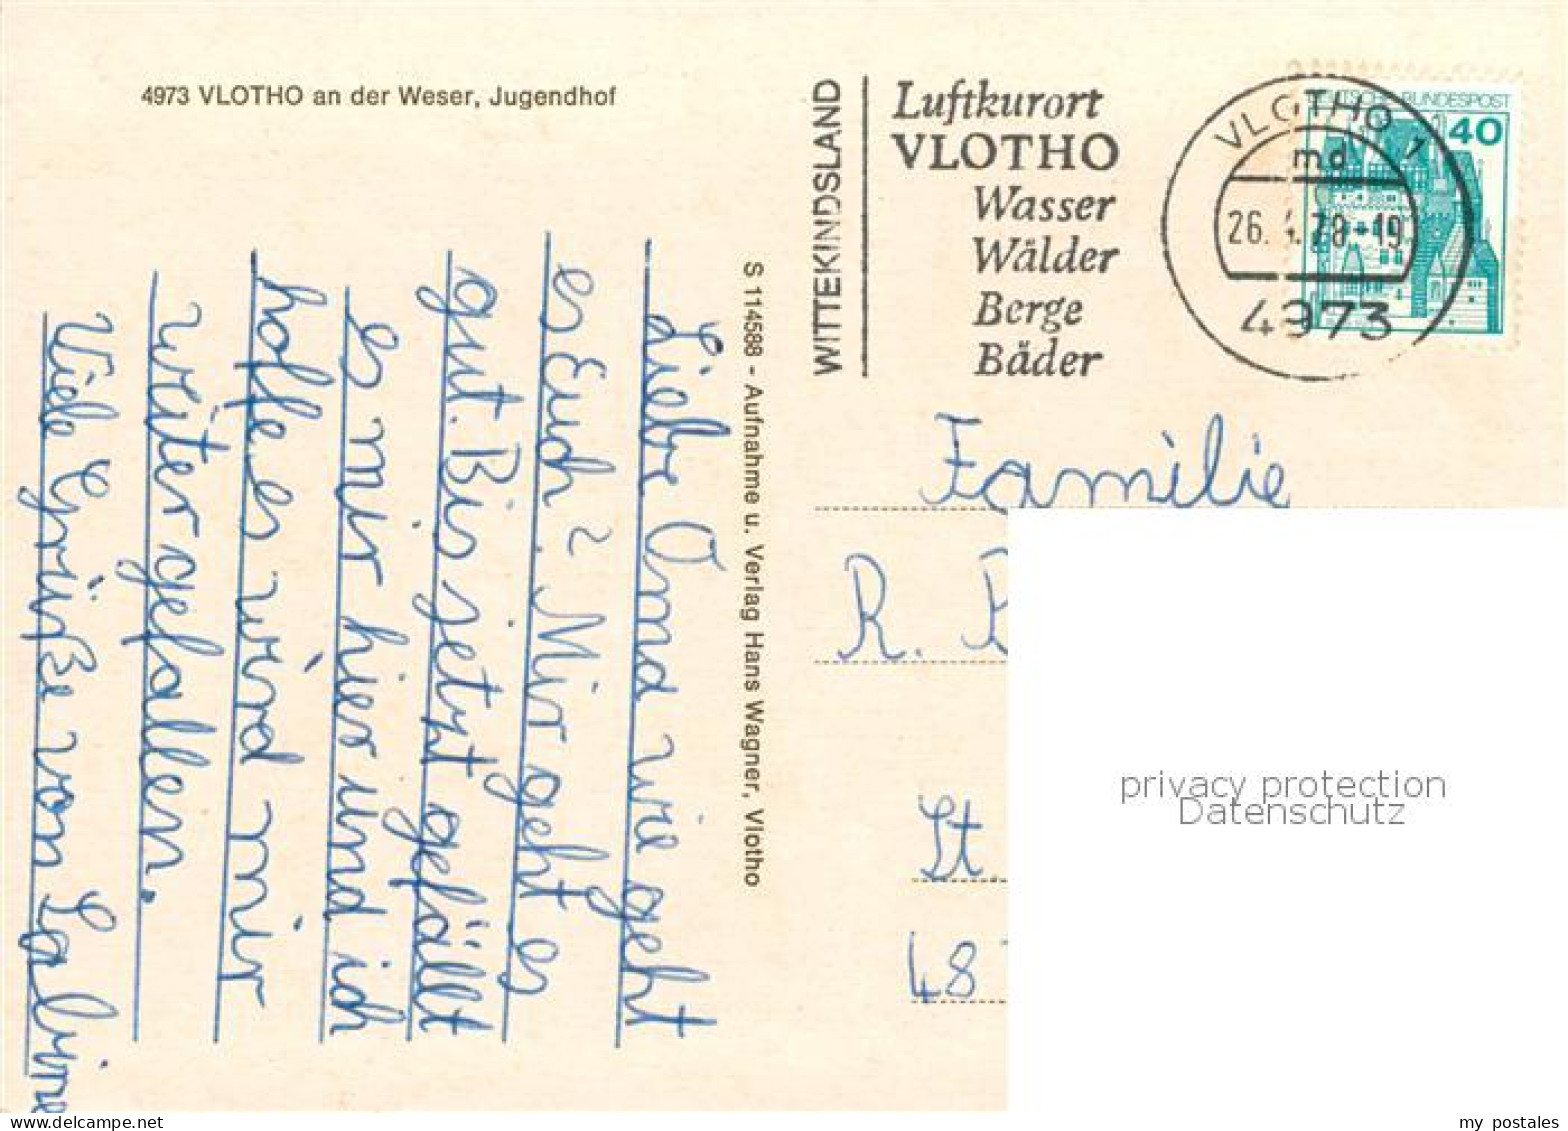 4973 VLOTHO an der Weser, Jugendhof
WITTEKINDSLAND
Luftkurort
VLOTHO
Wasser
Wälder
Berge
Bäder
DEUTSCHE BUNDESPOST
40
VLOTHO 1
md
26. 4.78-19
4973
S 114588 - Aufnahme u. Verlag Hans Wagner, Vlotho
Liebe Oma wie geht
es Euch? Mir geht es
gut. Bis jetzt gefällt
es mir hier und ich
hoffe es wird mir
weiter gefallen.
Viele Grüße von Sabine
Familie
R.
St.
48
privacy protection
Datenschutz
my postales